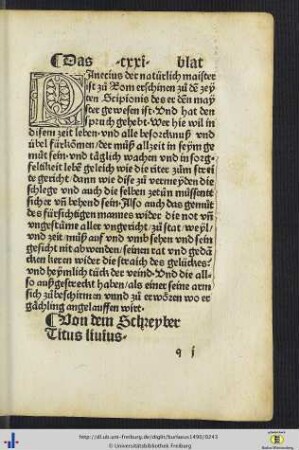 ¶Das ·cxxi· blat
PAnecius der natürlich maister
ist zů Rom erschinen zů dē zey
ten Scipionis des er dēn may
ster gewesen ist·Vnd hat den
spruch gehebt·Wer hie wil in
disem zeit leben·vnd alle besorcknuß vnd
übel fürkömen/der můß allzeit in seym ge
můt sein·vnd täglich wachen vnd in sorg-
feltikeit lebē gleich wie die riter zům strei
te gericht/dann wie dise zů vermeyden die
schlege vnd auch die selben zetůn müssent
sicher vn̄ behend sein·Also auch das gemüt
des fürsichtigen mannes wider die not vn̄
vngestüme aller vngericht/zů stat/weyl/
vnd zeit·můß auf vnd vmb sehen vnd sein
gesicht nit abwenden/seinen rat vnd gedä
cken keren wider die straich des gelückes/
vnd heymlich tück der veind·Vnd die all-
so außgestreckt haben/als einer seine arm
sich zůbeschirmen vnnd zů erwözen wo er
gächling angelauffen wirt·
¶Von dem Schreyber
Titus liuius·
q j
http://dl.ub.uni-freiburg.de/diglit/burlaeus1490/0243
© Universitätsbibliothek Freiburg